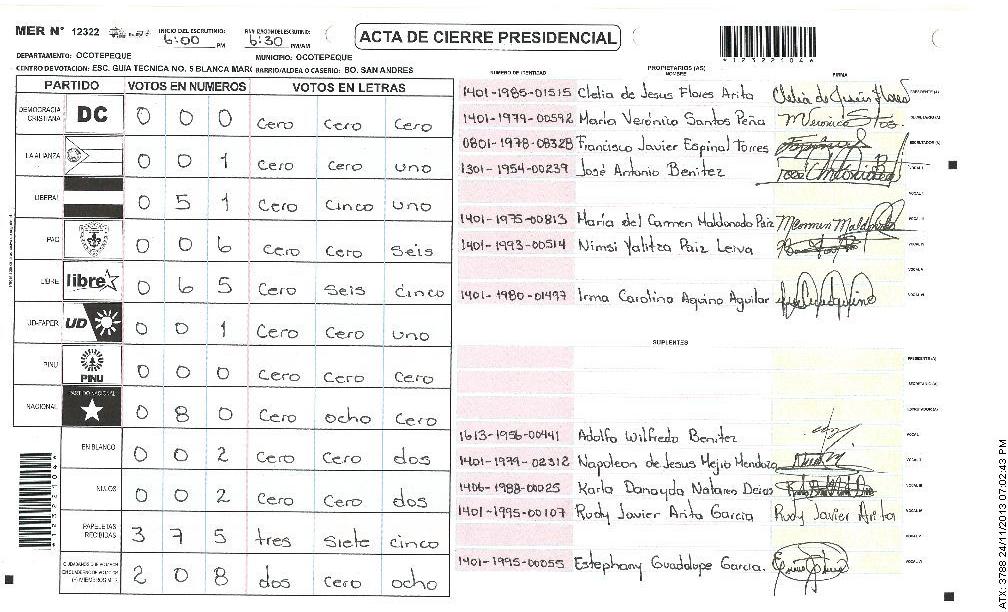 MER N° 12322
INICIO DEL ESCRUTINIO: 6:00 PM
6:30 PM/AM
ACTA DE CIERRE PRESIDENCIAL
DEPARTAMENTO: OCOTEPEQUE
MUNICIPIO: OCOTEPEQUE
CENTRO DE VOTACION: ESC. GUIA TECNICA NO. 5 BLANCA MAR
BARRIO/ALDEA O CASERIO: BO. SAN ANDRES
*12322104*
PARTIDO VOTOS EN NUMEROS VOTOS EN LETRAS
DEMOCRACIA CRISTIANA DC 0 0 0 Cero Cero Cero
LA ALIANZA 0 0 1 Cero Cero uno
LIBERAL 0 5 1 Cero Cinco uno
PAC 0 0 6 Cero Cero Seis
LIBRE libre 0 6 5 Cero Seis cinco
UD-FAPER UD 0 0 1 Cero Cero uno
PINU PINU 0 0 0 Cero Cero Cero
NACIONAL PARTIDO NACIONAL 0 8 0 Cero ocho Cero
EN BLANCO 0 0 2 Cero Cero dos
NULOS 0 0 2 Cero Cero dos
PAPELETAS RECIBIDAS 3 7 5 tres Siete cinco
2 0 8 dos cero ocho
NUMERO DE IDENTIDAD
PROPIETARIOS (AS)
NOMBRE
FIRMA
1401-1985-01515 Clelia de Jesus Flores Arita Clelia de Jesús Flores PRESIDENTE(A)
1401-1979-00592 María Verónica Santos Peña SECRETARIO(A)
0801-1978-08328 Francisco Javier Espinal Torres ESCRUTADOR(A)
1301-1954-00239 José Antonio Benitez VOCAL I
1401-1975-00813 María del Carmen Maldonado Paiz
1401-1993-00514 Nimsi Yalitza Paiz Leiva
1401-1980-01497 Irma Carolina Aquino Aguilar
SUPLENTES
PRESIDENTE(A)
SECRETARIO(A)
ESCRUTADOR(A)
1613-1956-00441 Adolfo Wilfredo Benitez
1401-1979-02312 Napoleon de Jesus Mejia Mendoza
1406-1988-00025 Karla Danayda
1401-1995-00107 Rudy Javier Arita Garcia Rudy Javier Arita
1401-1995-00055 Estephany Guadalupe Garcia.
ATX: 3788 24/11/2013 07:02:43 PM